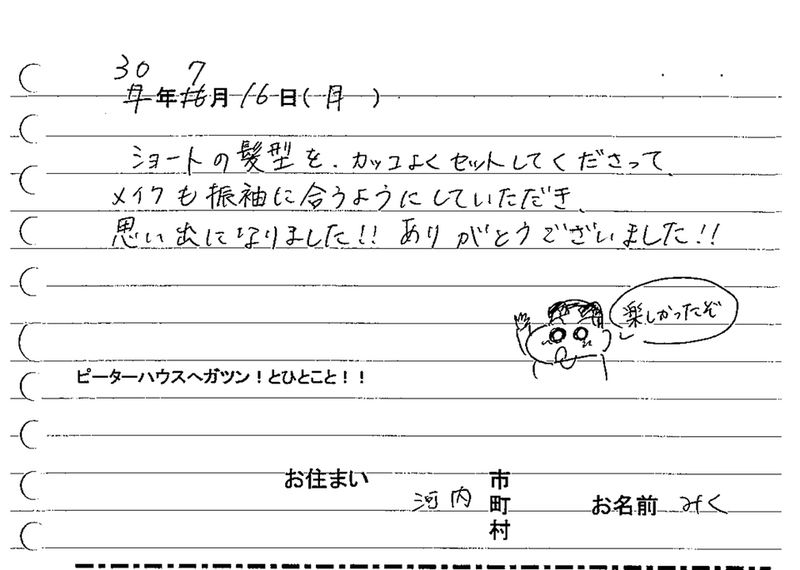 30 7
年月16日(月 )
ショートの髪型を、カッコよくセットしてくださって、
メイクも振袖に合うようにしていただき、
思い出になりました!! ありがとうございました!!
楽しかったぞ
ピーターハウスへガツン!とひとこと!!
お住まい 河内 市町村 お名前 みく